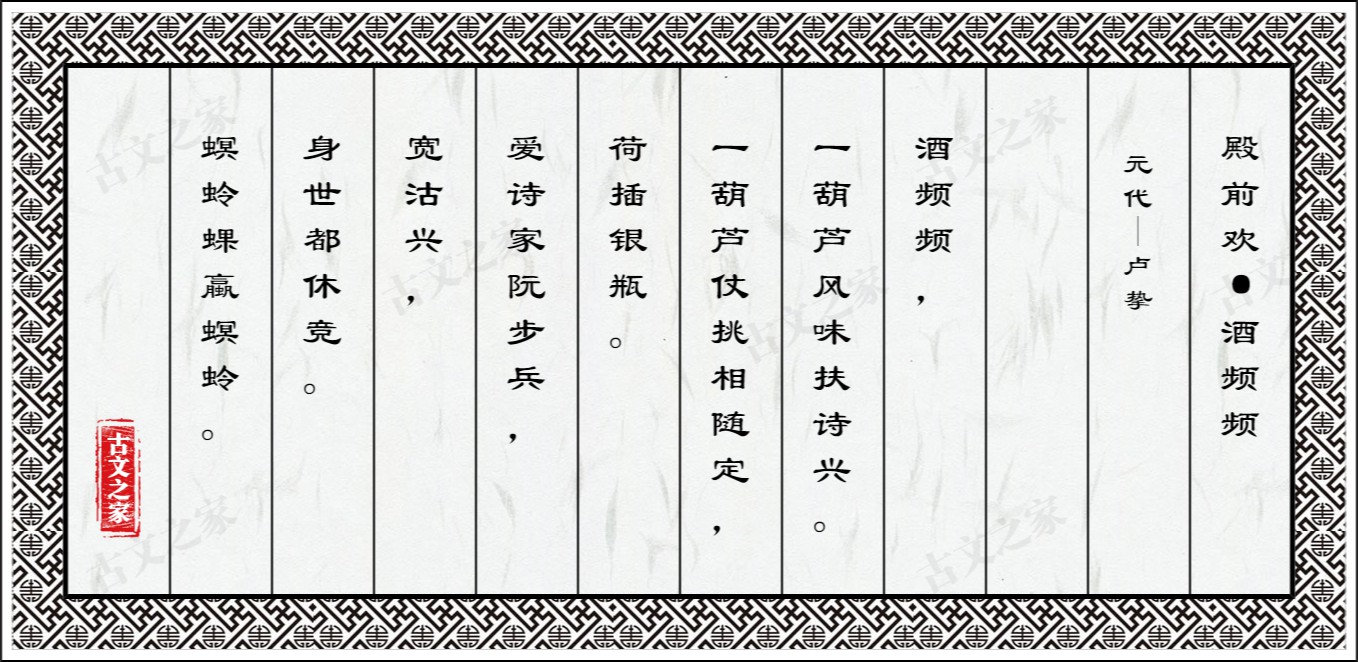 殿前欢●酒频频
元代——卢挚
酒频频，
一葫芦风味扶诗兴。
一葫芦仗挑相随定，
荷插银瓶。
爱诗家阮步兵，
宽沽兴，
身世都休竞。
螟蛉蜾蠃螟蛉。
古文之家